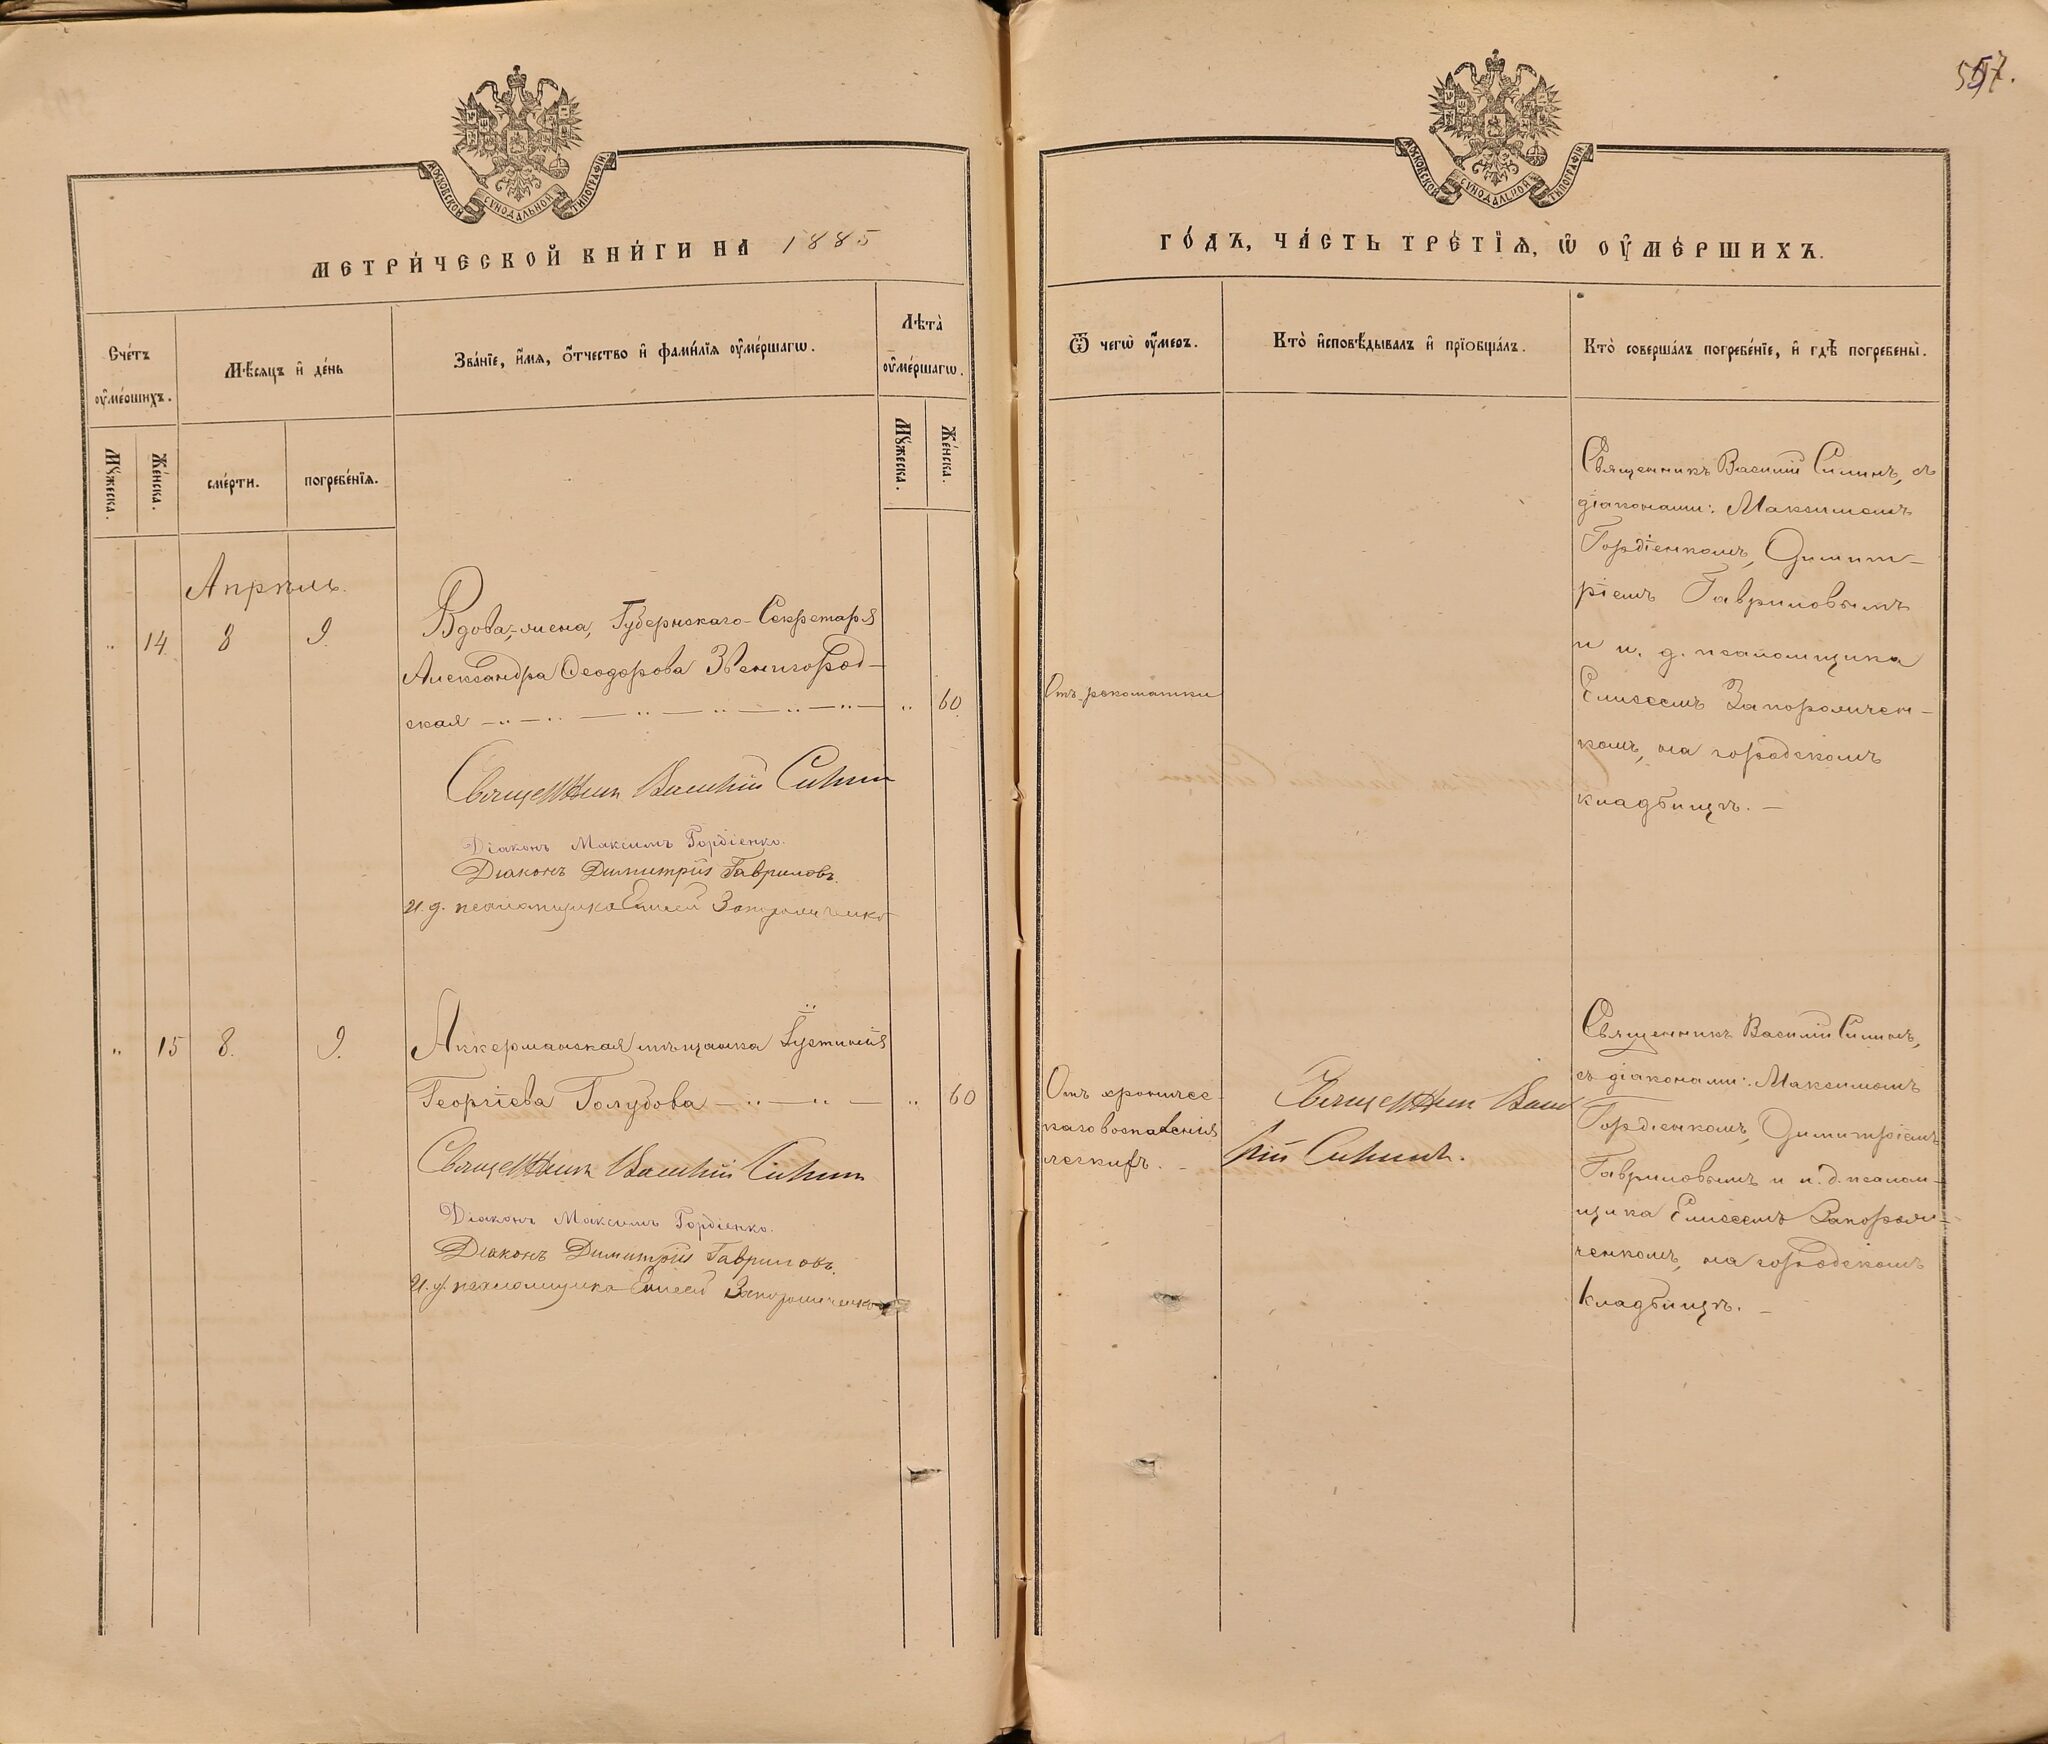 МОСКОВСКОЙ СѴНОДАЛЬНОЙ ТИПОГРАФІИ
МЕТРИ́ЧЕСКОЙ КНИ́ГИ НА 1885
Сче́тъ оу҆ме́ршихъ.
Мѣ́сяцъ и҆ де́нь
Зва́нїе, и҆́мя, ѻ҆́тчество и҆ фами́лїя оу҆ме́ршагѡ.
Лѣ́та оу҆ме́ршагѡ.
Мꙋ́жеска.
Же́нска.
сме́рти.
погребе́нїя.
Мꙋ́жеска.
Же́нска.
Апрѣль.
„ 14 8 9.
Вдова, жена, Губернскаго Секретаря
Александра Ѳеодорова Звенигород-
ская „ 60
Священникъ Василій Силинъ
Діаконъ Максимъ Гордіенко.
Діаконъ Димитрій Гавриловъ.
И. д. псаломщика Елисей
„ 15 8. 9.
Аккерманская мѣщанка Іустинія
Георгіева Голубова „ 60
Священникъ Василій Силинъ
Діаконъ Максимъ Гордіенко.
Діаконъ Димитрій Гавриловъ.
И. д. псаломщика Елисей
МОСКОВСКОЙ СѴНОДАЛЬНОЙ ТИПОГРАФІИ
ГО́ДЪ, ЧА́СТЬ ТРЕ́ТЇЯ, Ѡ҆ ОУ҆МЕ́РШИХЪ.
Ѿ чегѡ̀ оу҆́меръ.
Кто̀ и҆сповѣ́дывалъ и҆ прїѡбща́лъ.
Кто̀ соверша́лъ погребе́нїе, и҆ гдѣ̀ погребены̀.
Отъ
Священникъ Василій Силинъ, съ
діаконами: Максимомъ
Гордіенкомъ, Димит-
ріемъ Гавриловымъ
и и. д. псаломщика
Елисеемъ
комъ, на городскомъ
кладбищѣ. —
Отъ хроничес-
каго воспаленія
легкихъ. —
Священникъ Васи
лій Силинъ.
Священникъ Василій Силинъ,
съ діаконами: Максимомъ
Гордіенкомъ, Димитріемъ
Гавриловымъ и и. д. псалом-
щика Елисеемъ
ченкомъ, на городскомъ
кладбищѣ. —